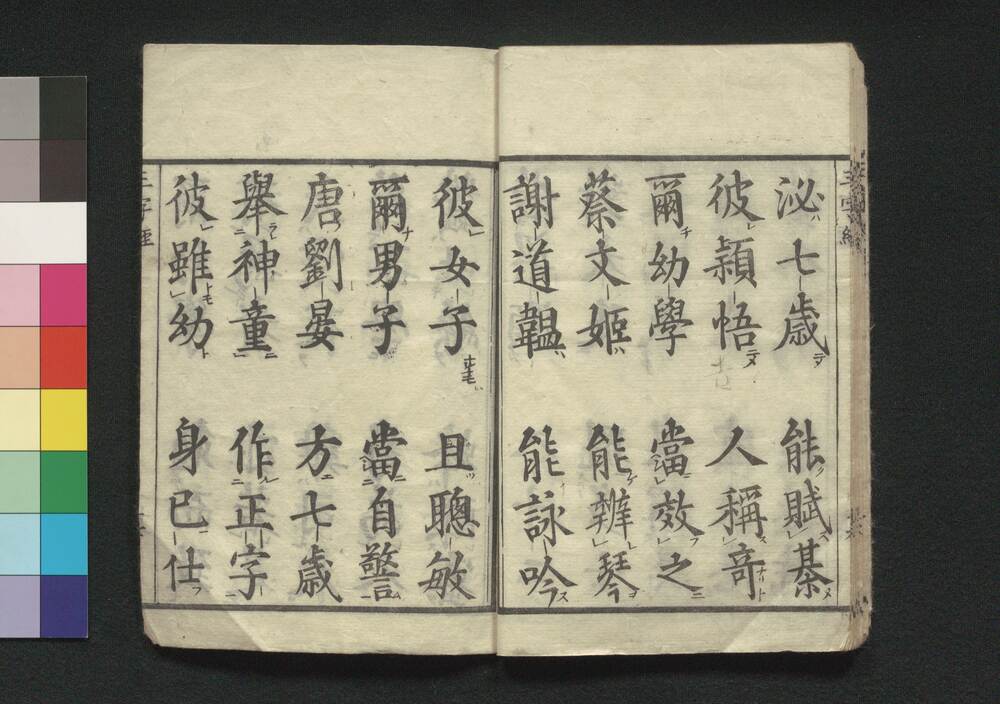 泌七歳 能賦棊
彼穎悟 人稱竒
爾幼學 當效之
蔡文姬 能辨琴
謝道韞 能詠吟
彼女子 且聰敏
爾男子 當自警
唐劉晏 方七歳
舉神童 作正字
彼雖幼 身已仕
三字經